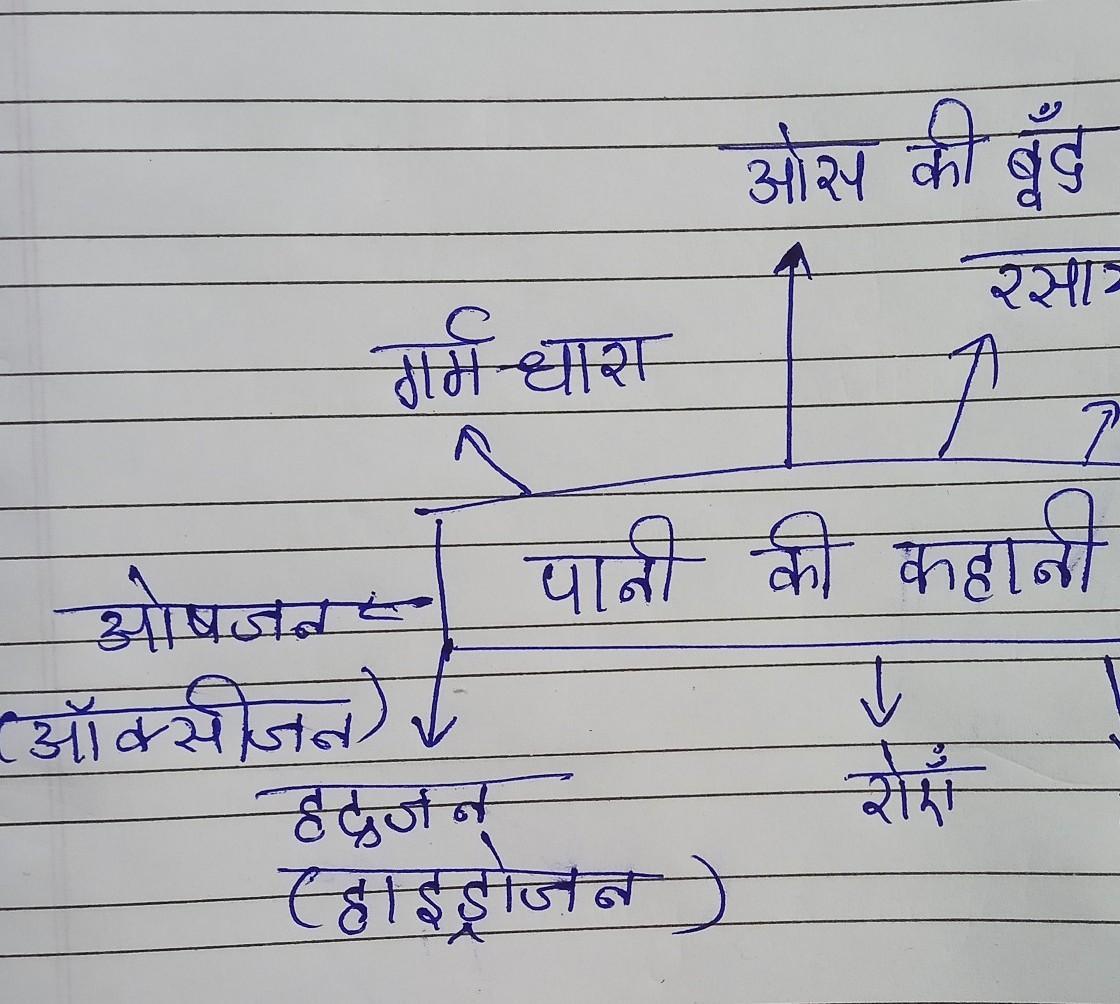 ओस की बूँद
गर्म-धारा
पानी की कहानी
ओषजन
(ऑक्सीजन)
रोएँ
हद्रजन
(हाइड्रोजन)